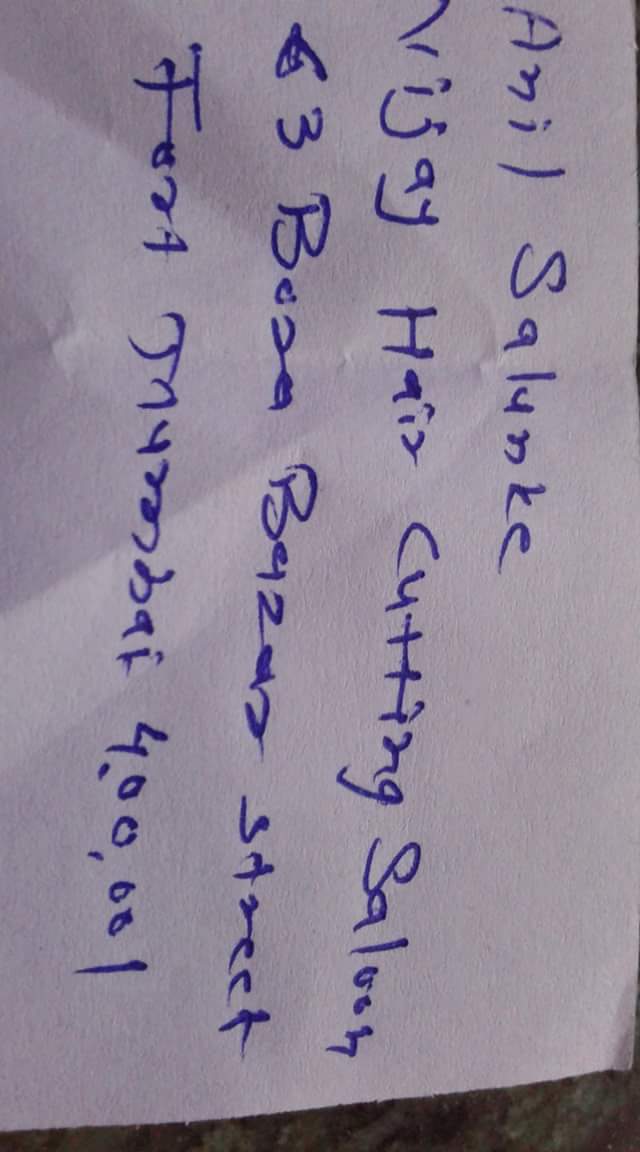 Anil Salunke
Vijay Hair Cutting Saloon
63 Bora Bazar street
Fort Mumbai 4,00,001